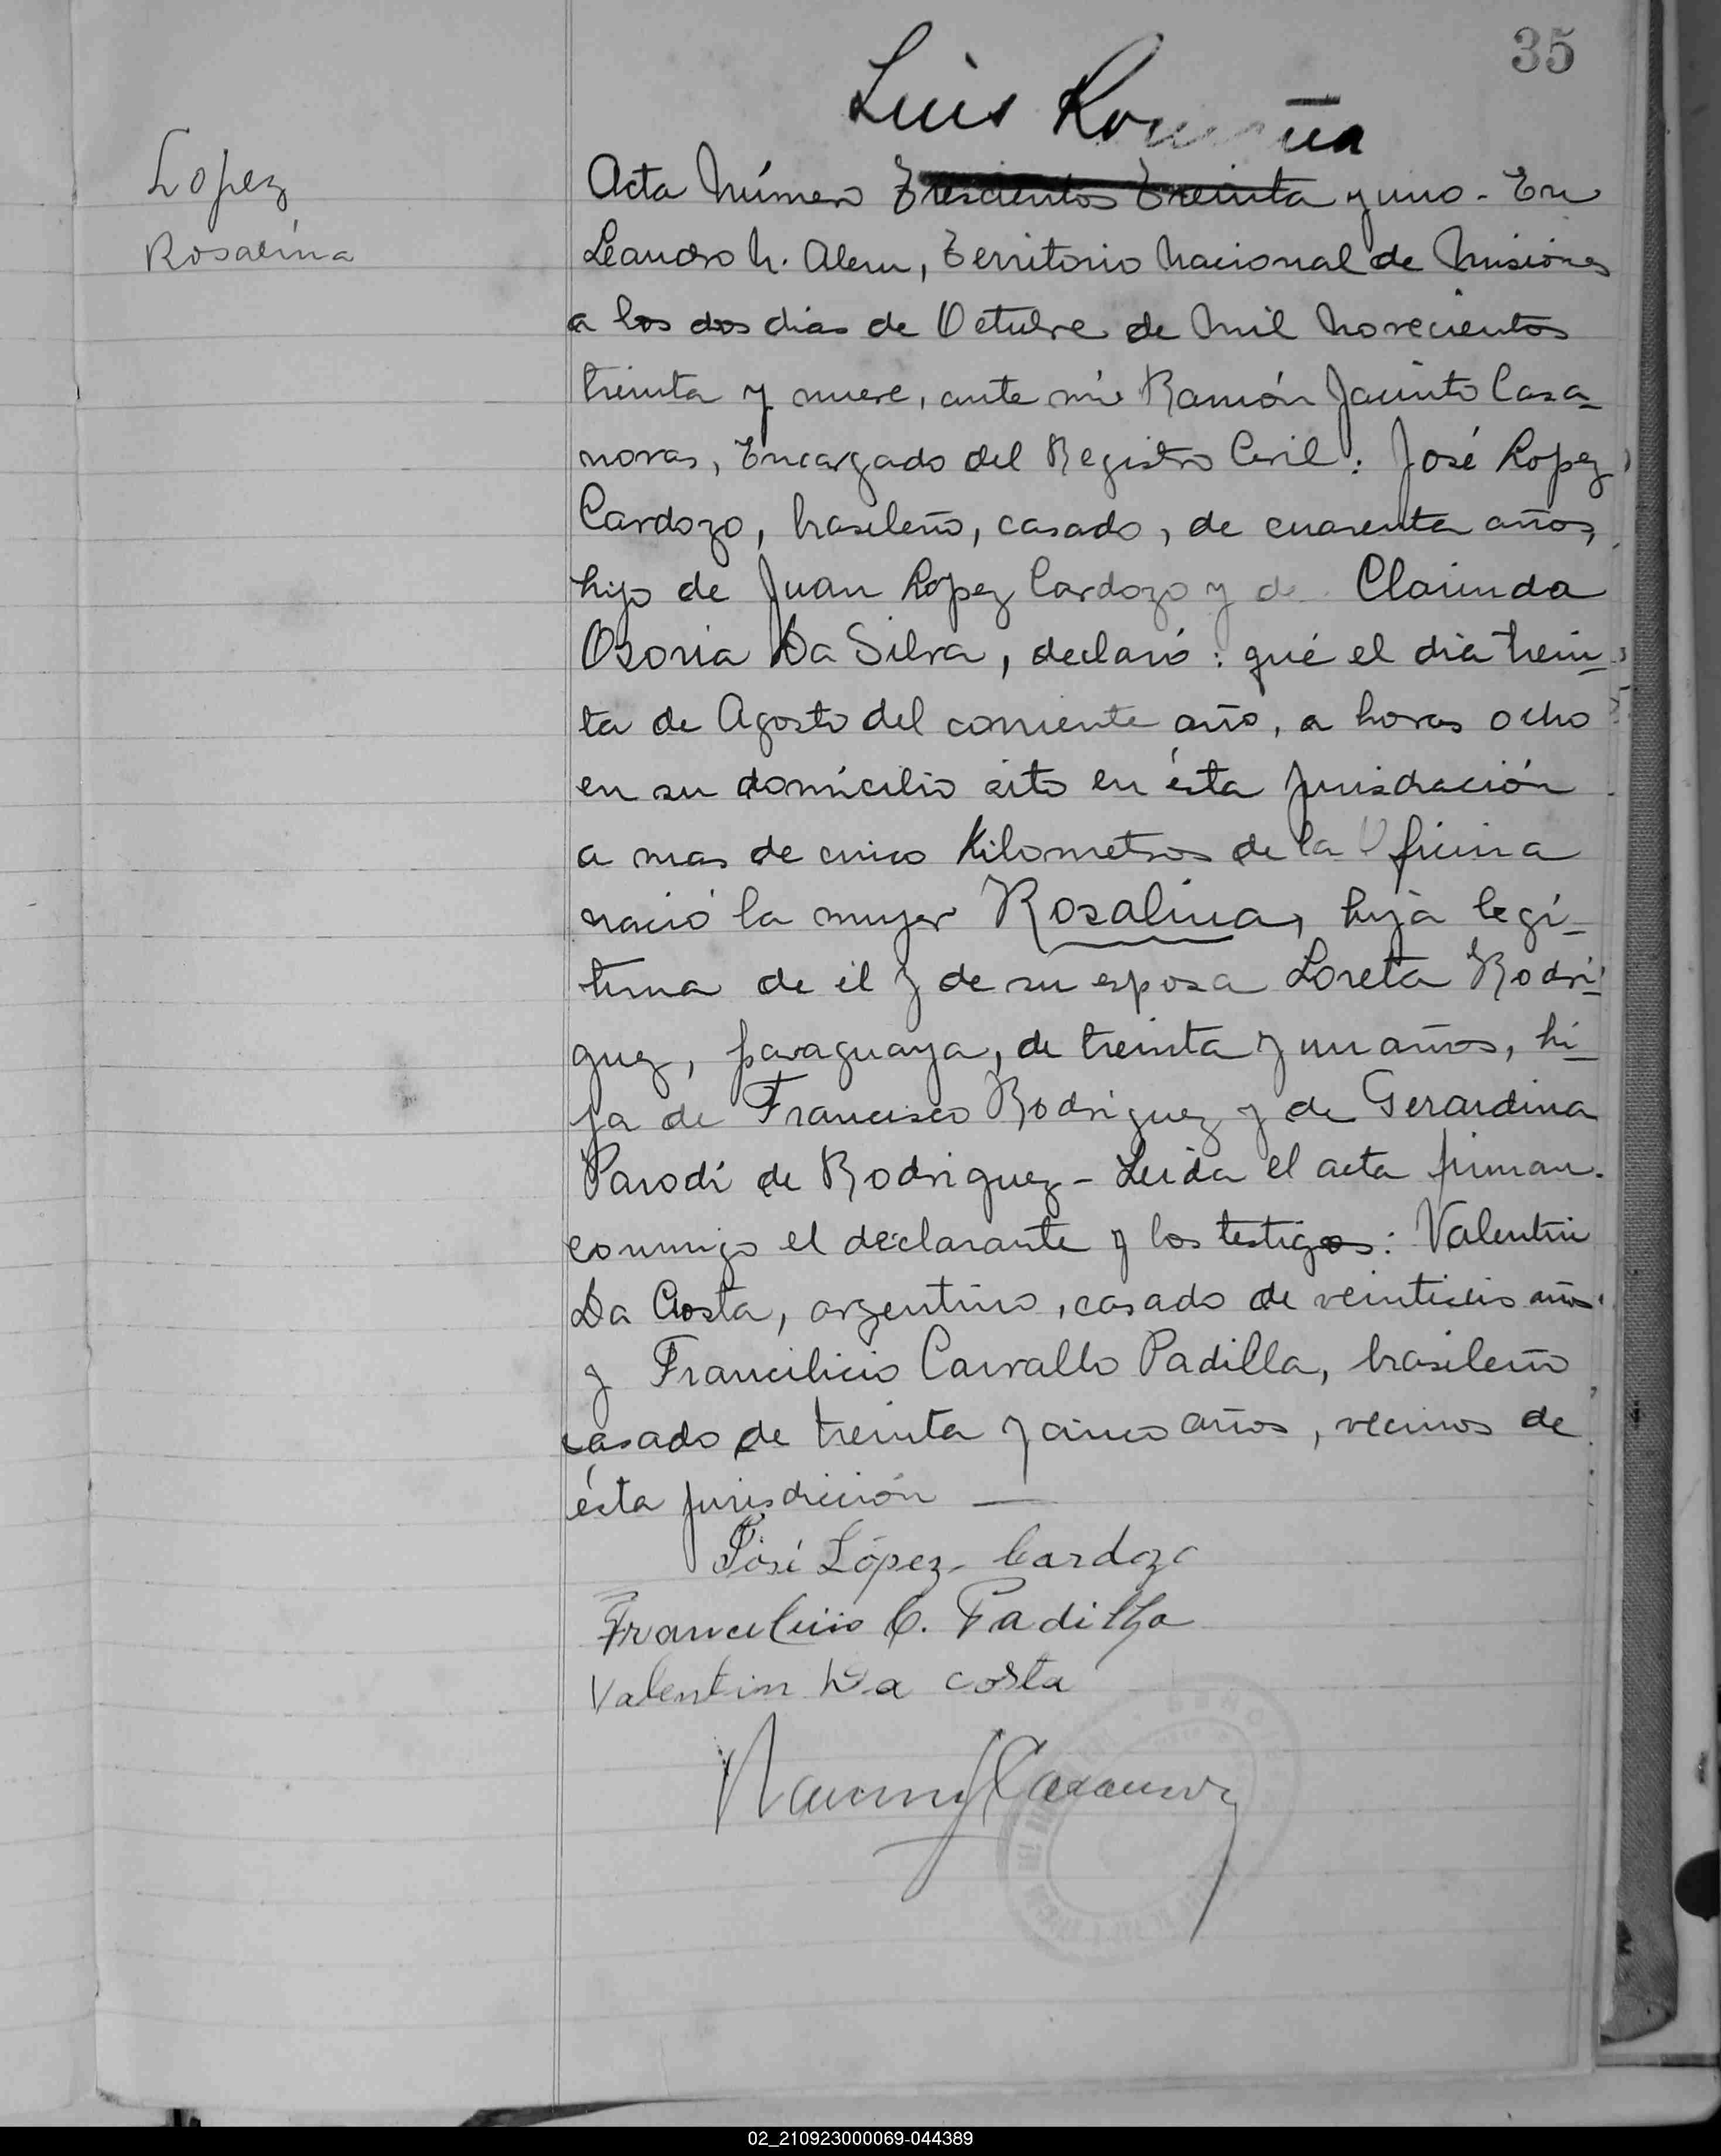 35
Luis Romaña
Lopez
Rosalina
Acta Número Trescientos Treinta y uno - En
Leandro N. Alem, Territorio Nacional de Misiones
a los dos dias de Octubre de mil novecientos
treinta y nueve, ante mi Ramón Jacinto Casa-
novas, Encargado del Registro Civil: José Lopez
Cardozo, brasileño, casado, de cuarenta años,
hijo de Juan Lopez Cardozo y de Clarinda
Osoria Da Silva, declaró: qué el dia trein-
ta de Agosto del corriente año, a horas ocho
en su domicilio sito en ésta jurisdicción
a mas de cinco Kilometros de la Oficina
nació la mujer Rosalina, hija legí-
tima de él y de su esposa Loreta Rodri-
guez, paraguaya, de treinta y un años, hi-
ja de Francisco Rodriguez y de Gerardina
Parodi de Rodriguez - Leida el acta firman
conmigo el declarante y los testigos: Valentin
Da Costa, argentino, casado de veintiseis años
y Francilicio Carvallo Padilla, brasileño
casado de treinta y cinco años, vecinos de
ésta jurisdicción —
José López Cardozo
C. Padilha
Valentin Da costa
02_210923000069-044389